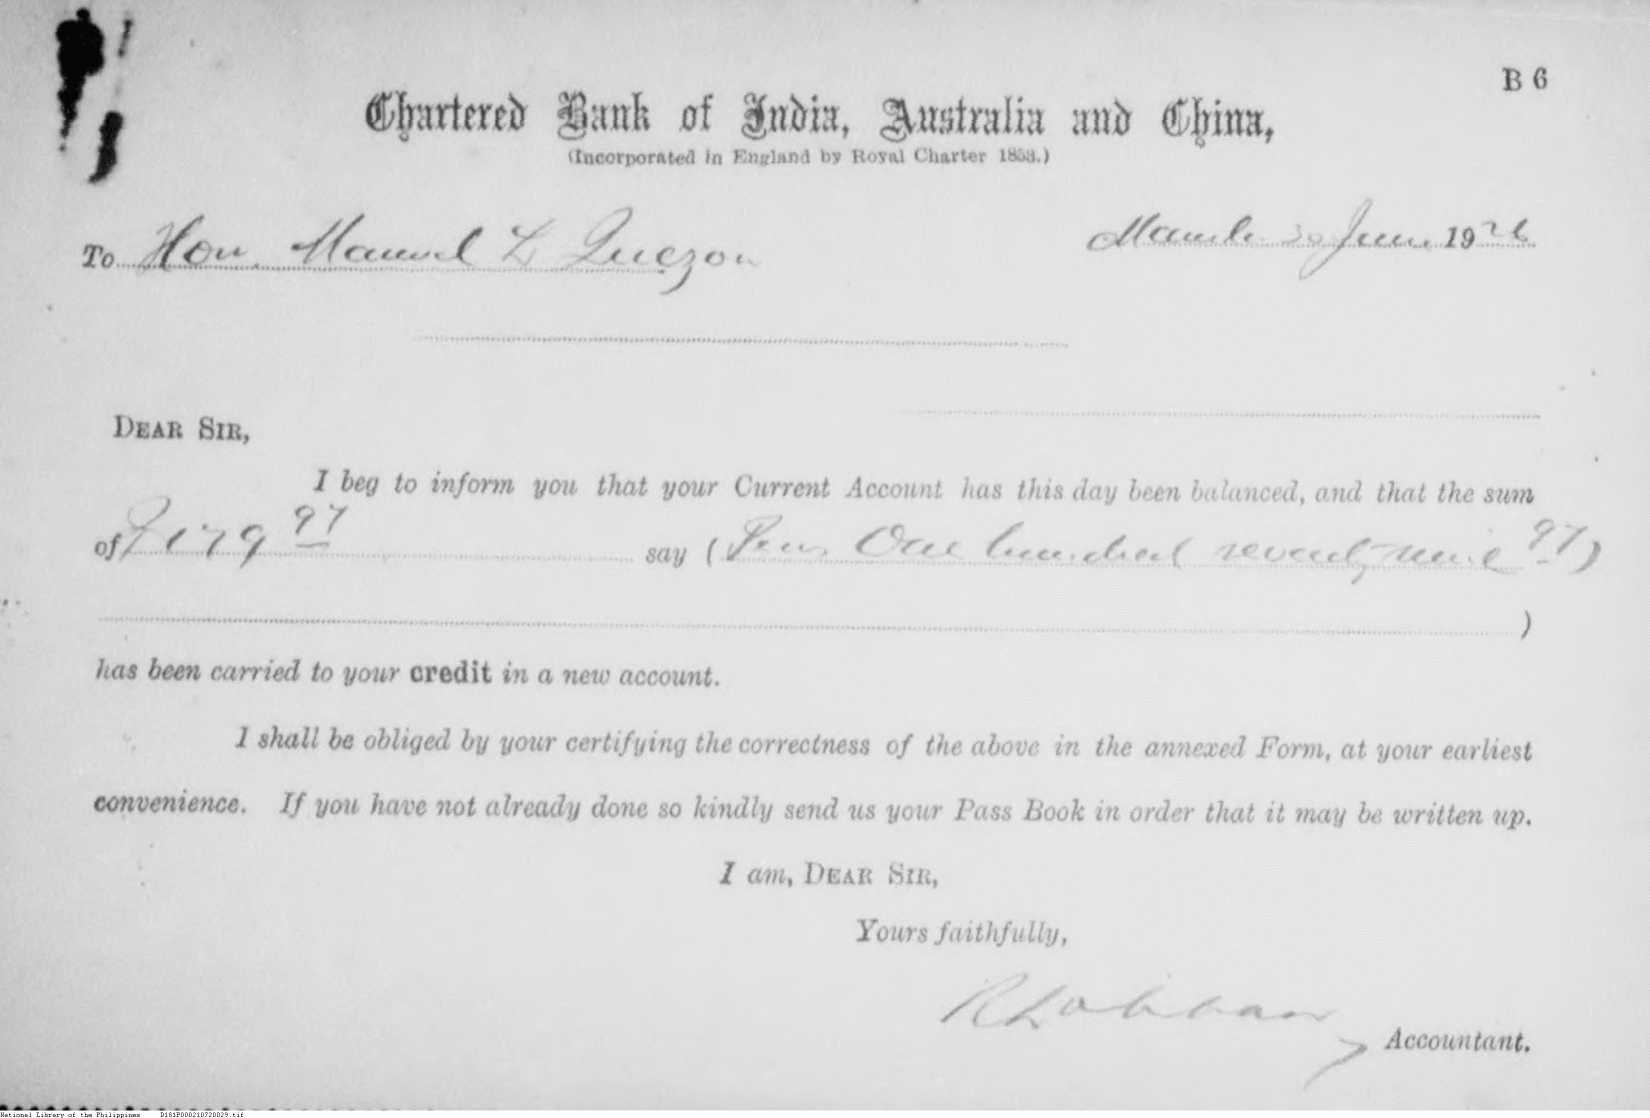 B 6
Chartered Bank of India, Australia and China,
(Incorporated in England by Royal Charter 1853.)
To Hon. Manuel L Quezon
Manila 30 June 1926
DEAR SIR,
I beg to inform you that your Current Account has this day been balanced, and that the sum
of P179 97 say (Pesos One hundred seventy nine 97)
)
has been carried to your credit in a new account.
I shall be obliged by your certifying the correctness of the above in the annexed Form, at your earliest
convenience. If you have not already done so kindly send us your Pass Book in order that it may be written up.
I am, DEAR SIR,
Yours faithfully,
Accountant.
National Library of the Philippines D181P000210720029.tif